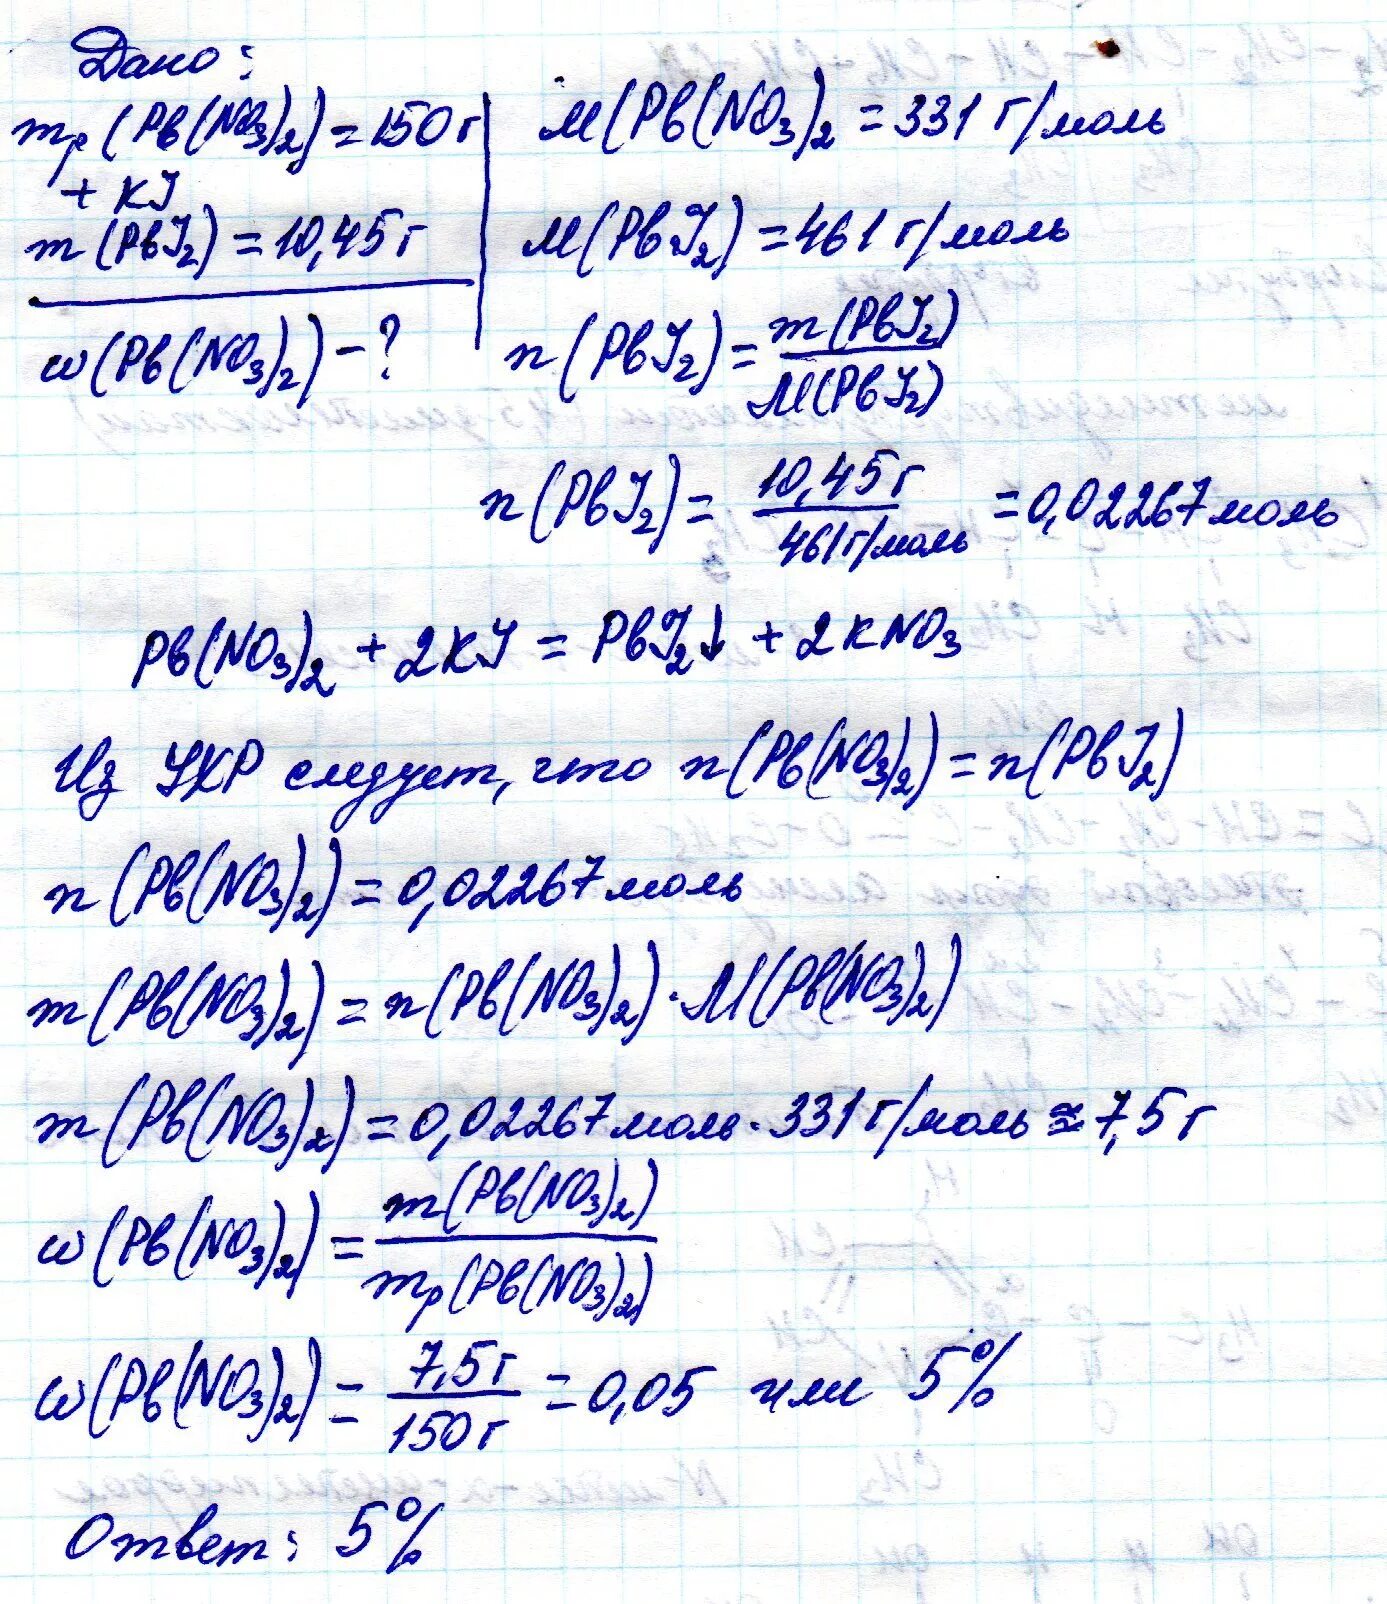 Дано:
mр(Pb(NO3)2)=150г
+ KJ
m(PbJ2)=10,45г
w(Pb(NO3)2)-?
M(Pb(NO3)2=331 г/моль
M(PbJ2)=461 г/моль
n(PbJ2)=m(PbJ2)/M(PbJ2)
n(PbJ2)=10,45г/461г/моль=0,02267моль
Pb(NO3)2+2KJ=PbJ2↓+2KNO3
Из УХР следует, что n(Pb(NO3)2)=n(PbJ2)
n(Pb(NO3)2)=0,02267моль
m(Pb(NO3)2)=n(Pb(NO3)2)·M(Pb(NO3)2)
m(Pb(NO3)2)=0,02267моль·331г/моль≈7,5г
w(Pb(NO3)2)=m(Pb(NO3)2)/mр(Pb(NO3)2)
w(Pb(NO3)2)=7,5г/150г=0,05 или 5%
Ответ: 5%